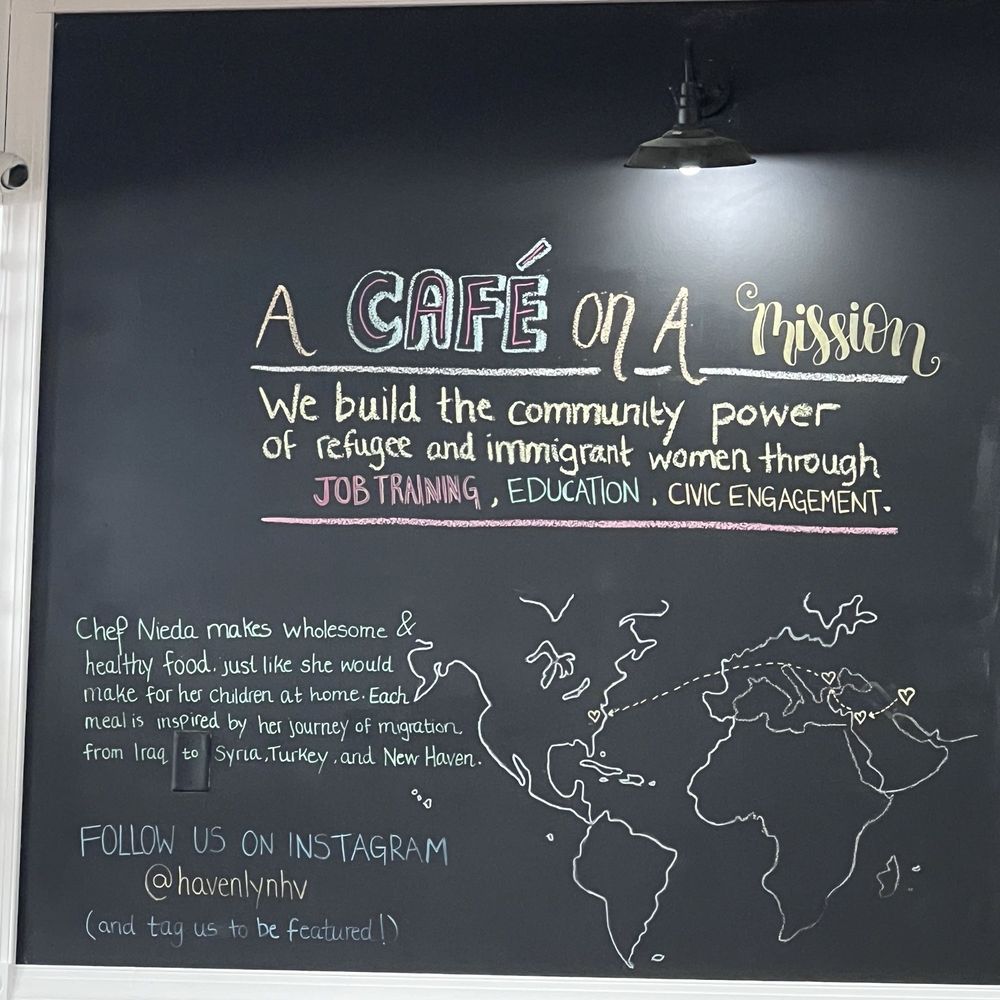 A CAFÉ on A mission
We build the community power
of refugee and immigrant women through
JOB TRAINING, EDUCATION, CIVIC ENGAGEMENT.
Chef Nieda makes wholesome &
healthy food. just like she would
make for her children at home. Each
meal is inspired by her journey of migration
from Iraq to Syria, Turkey, and New Haven.
FOLLOW US ON INSTAGRAM
@havenlynhv
(and tag us to be featured!)